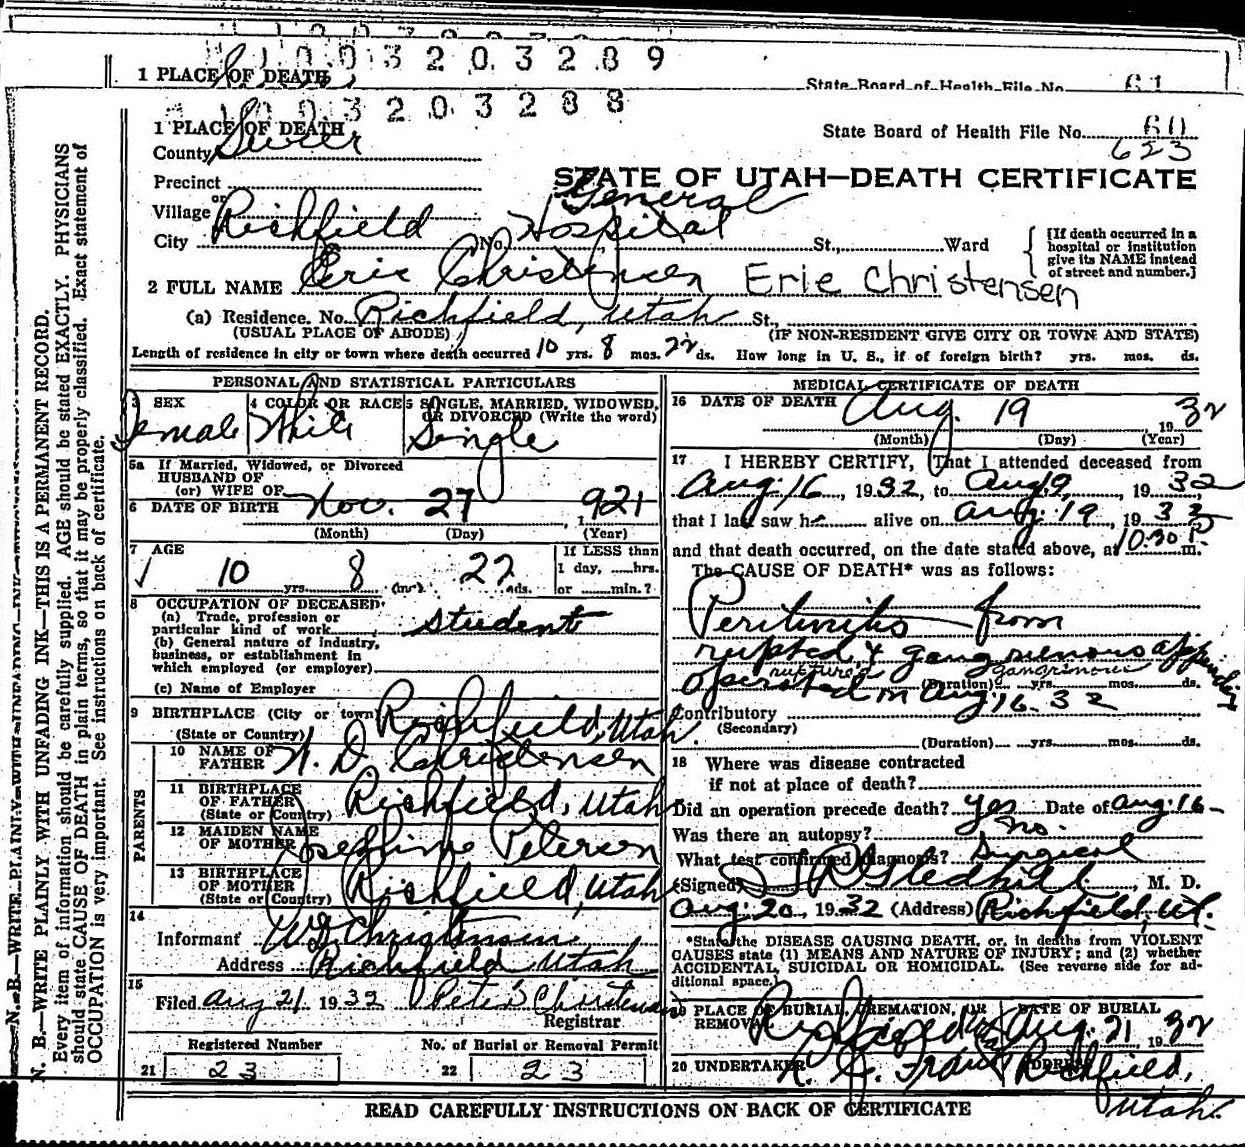 1 0 0 3 2 0 3 2 8 9
1 PLACE OF DEATH
State Board of Health File No. 61
1 0 0 3 2 0 3 2 8 8
1 PLACE OF DEATH
State Board of Health File No. 60
623
County Sevier
STATE OF UTAH—DEATH CERTIFICATE
Precinct
or
Village
General
City Richfield No. Hospital St., Ward
[If death occurred in a hospital or institution give its NAME instead of street and number.]
2 FULL NAME Erie Christensen Erie Christensen
(a) Residence. No. Richfield, Utah St.,
(USUAL PLACE OF ABODE) (IF NON-RESIDENT GIVE CITY OR TOWN AND STATE)
Length of residence in city or town where death occurred 10 yrs. 8 mos. 22 ds. How long in U. S., if of foreign birth? yrs. mos. ds.
PERSONAL AND STATISTICAL PARTICULARS
3 SEX Female
4 COLOR OR RACE White
5 SINGLE, MARRIED, WIDOWED, OR DIVORCED (Write the word) Single
5a If Married, Widowed, or Divorced
HUSBAND OF
(or) WIFE OF
6 DATE OF BIRTH Nov. 27 1921
(Month) (Day) (Year)
7 AGE
10 yrs. 8 mos. 22 ds.
If LESS than
1 day, ......hrs.
or ......min.?
8 OCCUPATION OF DECEASED
(a) Trade, profession or
particular kind of work student
(b) General nature of industry,
business, or establishment in
which employed (or employer)
(c) Name of Employer
9 BIRTHPLACE (City or town) Richfield, Utah
(State or Country)
PARENTS
10 NAME OF FATHER W. D. Christensen
11 BIRTHPLACE OF FATHER (State or Country) Richfield, Utah
12 MAIDEN NAME OF MOTHER Josephine Petersen
13 BIRTHPLACE OF MOTHER (State or Country) Richfield, Utah
14
Informant W D Christensen
Address Richfield Utah
15
Filed Aug 21, 1932 Peter Christensen
Registrar
Registered Number No. of Burial or Removal Permit
21 23 22 23
MEDICAL CERTIFICATE OF DEATH
16 DATE OF DEATH Aug. 19, 1932
(Month) (Day) (Year)
17 I HEREBY CERTIFY, That I attended deceased from
Aug. 16, 1932, to Aug 19, 1932
that I last saw her alive on Aug. 19, 1932
and that death occurred, on the date stated above, at 10:30 P m.
The CAUSE OF DEATH* was as follows:
Peritinitis from
rupted & gangrenous appendix
ruptured gangrenous
(Duration) yrs. mos. ds.
Operated on Aug. 16. 32
Contributory
(Secondary)
(Duration) yrs. mos. ds.
18 Where was disease contracted
if not at place of death?
Did an operation precede death? Yes Date of Aug. 16-
Was there an autopsy? no.
What test confirmed diagnosis? Surgical
(Signed) Gledhill, M. D.
Aug. 20, 1932 (Address) Richfield, Ut.
*State the DISEASE CAUSING DEATH, or, in deaths from VIOLENT
CAUSES state (1) MEANS AND NATURE OF INJURY; and (2) whether
ACCIDENTAL, SUICIDAL OR HOMICIDAL. (See reverse side for additional space.)
19 PLACE OF BURIAL, CREMATION, OR REMOVAL Richfield
DATE OF BURIAL Aug. 21, 1932
20 UNDERTAKER ADDRESS
Richfield,
Utah.
READ CAREFULLY INSTRUCTIONS ON BACK OF CERTIFICATE
N. B.—WRITE PLAINLY WITH UNFADING INK—THIS IS A PERMANENT RECORD.
Every item of information should be carefully supplied. AGE should be stated EXACTLY. PHYSICIANS
should state CAUSE OF DEATH in plain terms, so that it may be properly classified. Exact statement of
OCCUPATION is very important. See instructions on back of certificate.